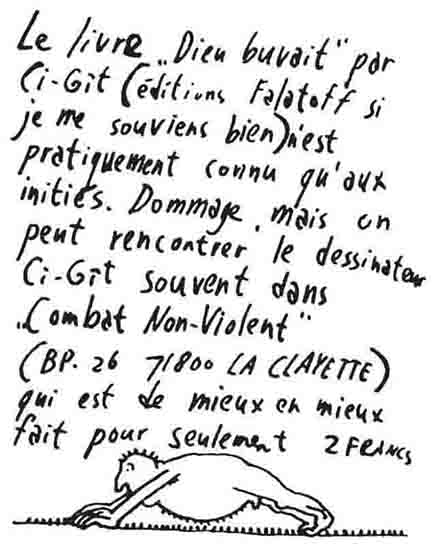 Le livre „Dieu buvait" par
Ci-Gît (éditions Falatoff si
je me souviens bien) n'est
pratiquement connu qu'aux
initiés. Dommage, mais on
peut rencontrer le dessinateur
Ci-Gît souvent dans
„Combat Non-Violent"
(BP. 26 71800 LA CLAYETTE)
qui est de mieux en mieux
fait pour seulement 2 FRANCS